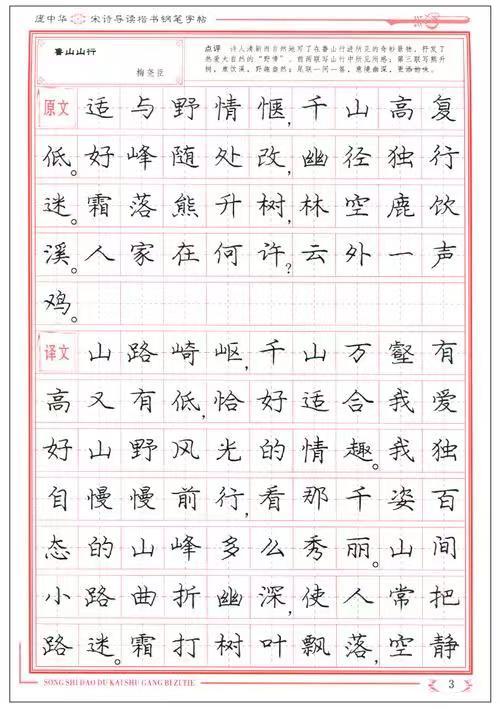 庞中华 宋诗导读楷书钢笔字帖
鲁山山行
梅尧臣
点评 诗人清新而自然地写了在鲁山行进所见的奇妙景物，抒发了
热爱大自然的“野情”。前两联写山行中所见所感；第三联写熊升
树，鹿饮溪，野趣盎然；尾联一问一答，意境幽深，更添韵味。
原文 适与野情惬，千山高复
低。好峰随处改，幽径独行
迷。霜落熊升树，林空鹿饮
溪。人家在何许？云外一声
鸡。
译文 山路崎岖，千山万壑有
高又有低，恰好适合我爱
好山野风光的情趣。我独
自慢慢前行，看那千姿百
态的山峰多么秀丽。山间
小路曲折幽深，使人常把
路迷。霜打树叶飘落，空静
SONG SHI DAO DU KAI SHU GANG BI ZI TIE
3